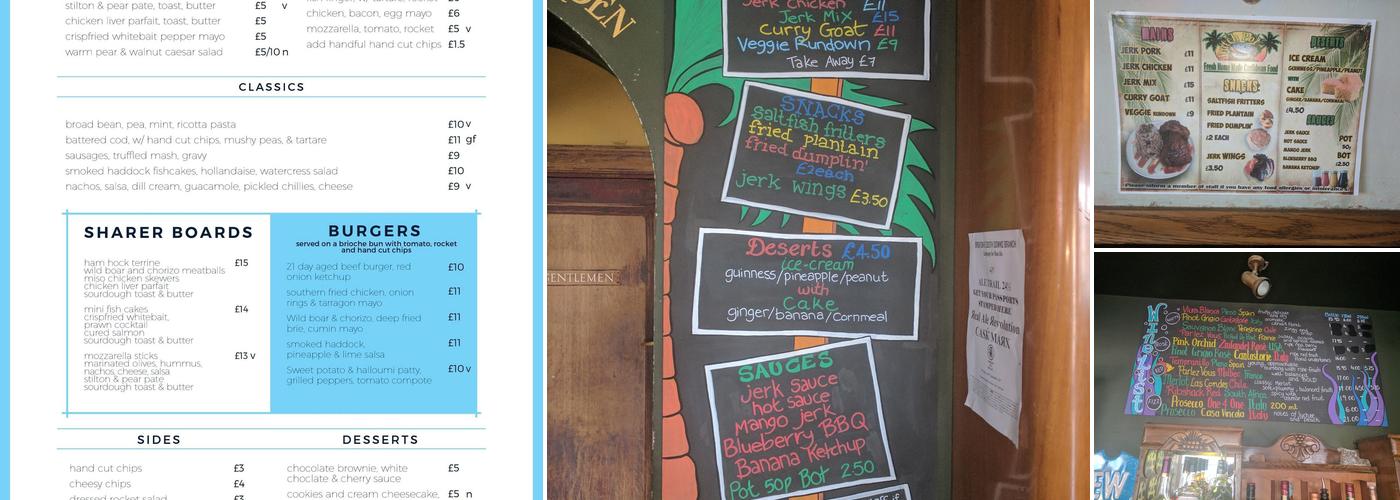 stilton & pear pate, toast, butter £5 v
chicken liver parfait, toast, butter £5
crispfried whitebait pepper mayo £5
warm pear & walnut caesar salad £5/10 n
chicken, bacon, egg mayo £6
mozzarella, tomato, rocket £5 v
add handful hand cut chips £1.5
CLASSICS
broad bean, pea, mint, ricotta pasta £10 v
battered cod, w/ hand cut chips, mushy peas, & tartare £11 gf
sausages, truffled mash, gravy £9
smoked haddock fishcakes, hollandaise, watercress salad £10
nachos, salsa, dill cream, guacamole, pickled chillies, cheese £9 v
SHARER BOARDS
ham hock terrine £15
wild boar and chorizo meatballs
miso chicken skewers
chicken liver parfait
sourdough toast & butter
mini fish cakes £14
crispfried whitebait,
prawn cocktail
cured salmon
sourdough toast & butter
mozzarella sticks £13 v
marinated olives, hummus,
nachos, cheese, salsa
stilton & pear pate
sourdough toast & butter
BURGERS
served on a brioche bun with tomato, rocket
and hand cut chips
21 day aged beef burger, red £10
onion ketchup
southern fried chicken, onion £11
rings & tarragon mayo
Wild boar & chorizo, deep fried £11
brie, cumin mayo
smoked haddock, £11
pineapple & lime salsa
Sweet potato & halloumi patty, £10 v
grilled peppers, tomato compote
SIDES
hand cut chips £3
cheesy chips £4
dressed rocket salad £3
DESSERTS
chocolate brownie, white £5
choclate & cherry sauce
cookies and cream cheesecake, £5 n
Jerk Chicken £11
Jerk Mix £15
Curry Goat £11
Veggie Rundown £9
Take Away £7
SNACKS
saltfish fritters
fried plantain
fried dumplin'
£2each
jerk wings £3.50
Deserts £4.50
ice-cream
guinness/pineapple/peanut
with
Cake
ginger/banana/cornmeal
SAUCES
jerk sauce
hot sauce
Mango jerk
Blueberry BBQ
Banana Ketchup
Pot 50p Bot 2.50
GENTLEMEN
ALE TRAIL
GET YOUR PASSPORTS
STAMPED HERE
Real Ale Revolution
CASK MARX
MAINS
JERK PORK £11
JERK CHICKEN £11
JERK MIX £15
CURRY GOAT £11
VEGGIE RUNDOWN £9
Fresh Home Made Caribbean Food
SNACKS
SALTFISH FRITTERS
FRIED PLANTAIN
FRIED DUMPLIN'
£2 EACH
JERK WINGS
£3.50
DESERTS
ICE CREAM
GUINNESS/PINEAPPLE/PEANUT
WITH
CAKE
GINGER/BANANA/CORNMEAL
£4.50
SAUCES
JERK SAUCE
HOT SAUCE
MANGO JERK
BLUEBERRY BBQ
BANANA KETCHUP
POT
50p
BOT
£2.50
Please inform a member of staff if you have any food allergies or intolerances
Pinot Grigio
Sauvignon Blanc
Pink Orchid Zinfandel Rosé USA
Pinot Grigio Rosé Cantastorie Italy
Parlez Vous Malbec France
Merlot Las Condes Chile
Shack Red South Africa
Prosecco One 4 One Italy 200 ml
Prosecco Casa Vincola Italy